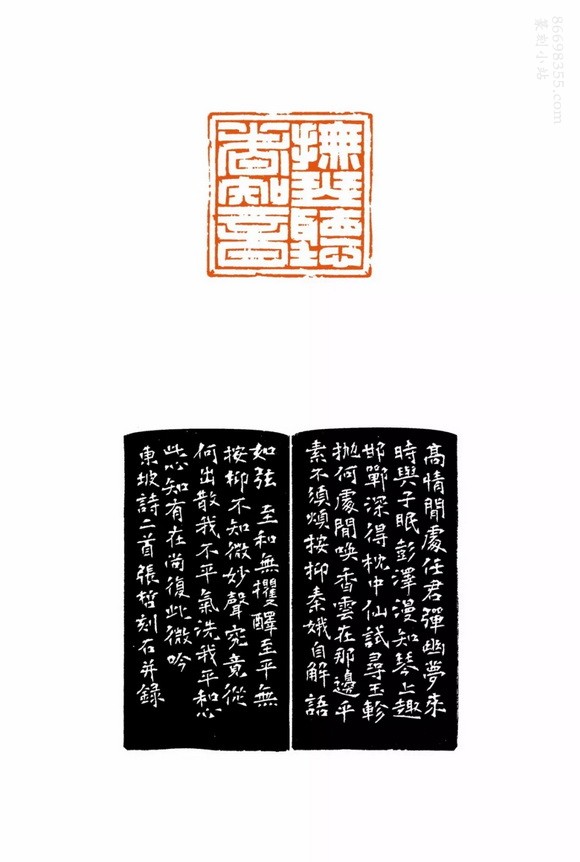 撫琴聽
高情閒處任君彈幽夢來
時與子眠彭澤漫知琴上趣
邯鄲深得枕中仙試尋玉軫
抛何處閒喚香雲在那邊平
素不須煩按抑秦娥自解語
如弦 至和無攫醳至平無
按抑不知微妙聲究竟從
何出散我不平氣洗我平和心
此心知有在尚復此微吟
東坡詩二首張哲刻石并錄
86698355.com
篆刻小站